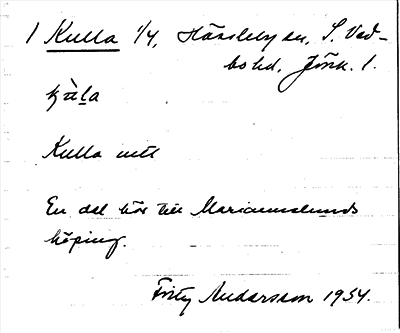 1 Kulla 1/4, Hässleby sn, S. Ved-
bo hd, Jönk. l.
Kulla
En del hör till Mariannelunds
köping.
Andersson 1954.